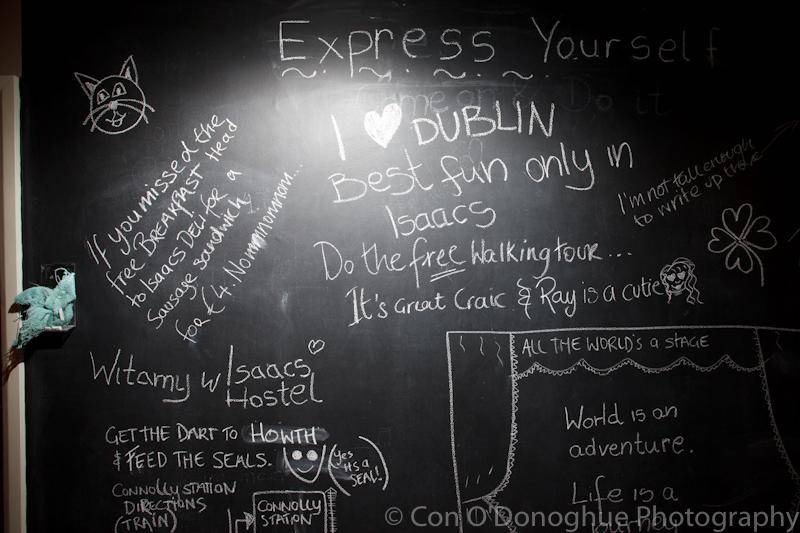 Express Yourself
Come on & Do it
I ♥ DUBLIN
Best fun only in
Isaacs
Do the free Walking tour...
It's Great Craic & Ray is a cutie
I'm not tall enough
to write up there
If you missed the
free BREAKFAST Head
to Isaacs Deli for a
Sausage sandwich
for €4. Nommmnommom...
Witamy w Isaacs
Hostel
GET THE DART TO HOWTH
& FEED THE SEALS.
(Yes
its a
SEAL!)
CONNOLLY STATION
DIRECTIONS
(TRAIN)
CONNOLLY
STATION
ALL THE WORLD'S A STAGE
World is an
adventure.
Life is a
journey
© Con O'Donoghue Photography